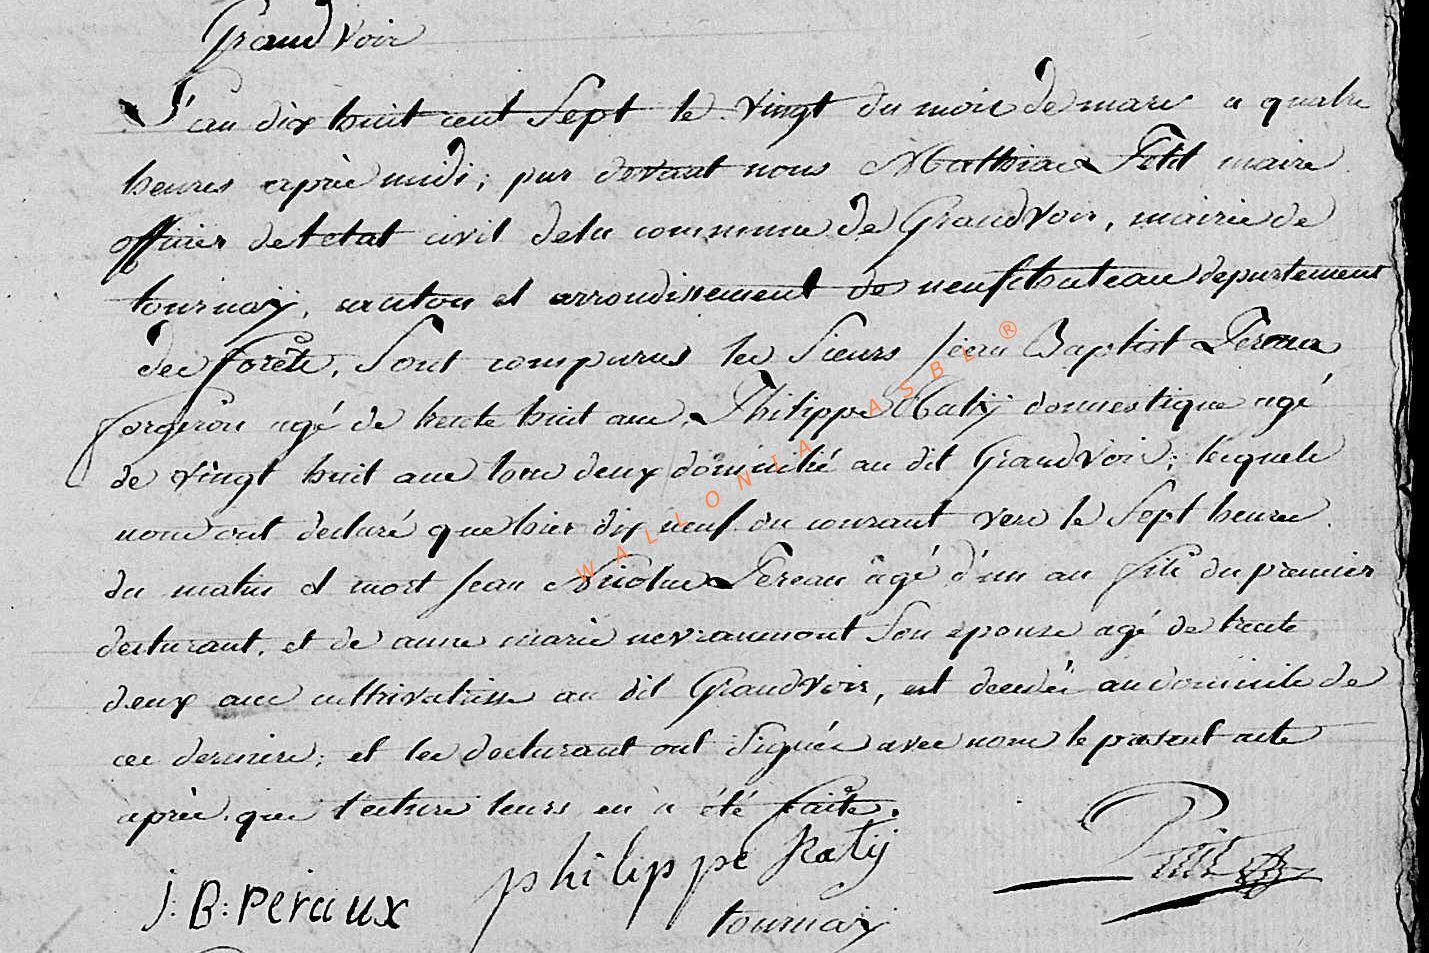 Grandvoir
L'an dix huit cent Sept le vingt du mois de mars a quatre
heures après midi, par devant nous Mathias Petit maire
officier de letat civil dela commune de Grandvoir, mairie de
tournaÿ, canton et arrondissement de neufchateau departement
des forêts, Sont comparus les Sieurs jean Baptist Pereau
forgeron agé de trente huit ans, Philippe Ratÿ domestique agé
de vingt huit ans tous deux domicilié au dit Grandvoir; lesquels
nous ont declaré que hier dix neuf du courant vers le Sept heures
du matin et mort jean Nicolas Pereau âgé d'un an fils du premier
declarant, et de anne marie nevraumont Son epouse agé de trente
deux ans cultivatrice au dit Grandvoir, est decedée au domicile de
ces derniers; et les declarant ont Signés avec nous le present acte
après que lecture leurs en a été faite.
J: B: Peraux philippe Ratij Petit
tournaÿ
WALLONIA ASBL ®